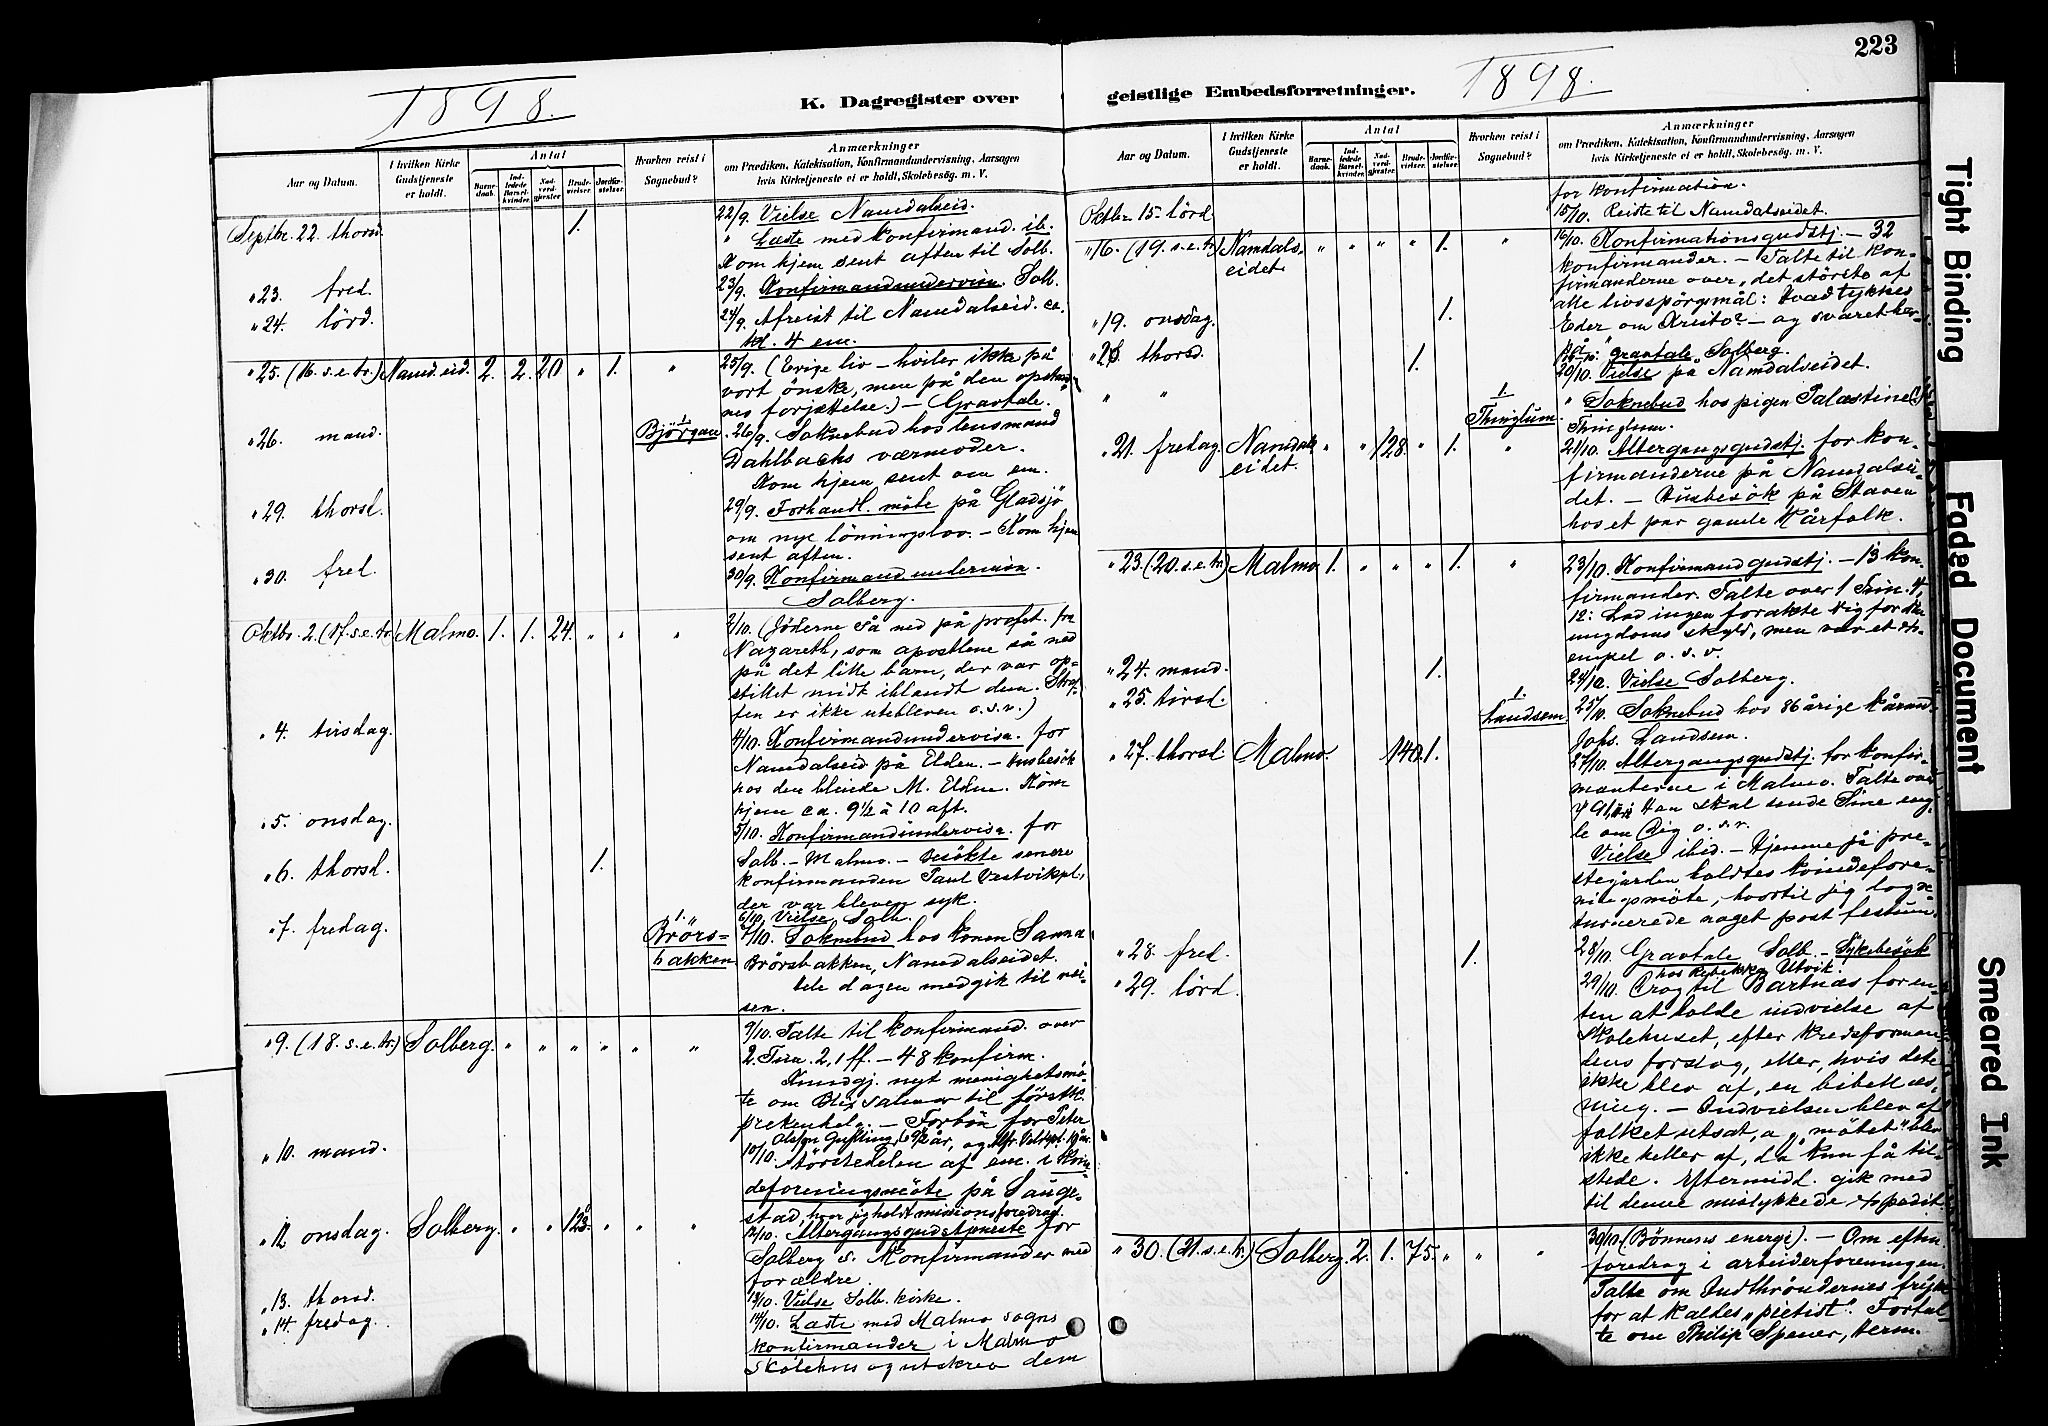 223
1898.
K. Dagregister over
geistlige Embedsforretninger.
1898.
Aar og Datum.
I hvilken Kirke Gudstjeneste er holdt.
Antal
Barnedaab.
Indledede Barselkvinder.
Nadverdgjæster.
Brudevielser.
Jordfæstelser.
Hvorhen reist i Sognebud?
Anmærkninger
om Prædiken, Katekisation, Konfirmandundervisning, Aarsagen
hvis Kirketjeneste ei er holdt, Skolebesøg. m. V.
Septbr. 22. thorsd. 1. 22/9. Vielse Namdalseid.
" Læste med konfirmand. ib.
Kom hjem sent aften til Solb.
" 23. fred. 23/9. Konfirmandundervisn. Solb.
" 24. lörd. 24/9. Afreist til Namdalseid. ca.
kl. 4 em.
" 25. (16. s. e. tr.) Namd. eid. 2. 2. 20 " 1. " 25/9. (Evige liv – hviler ikke på
vort önske, men på den opstand-
nes forjættelse.) – Gravtale.
" 26. mand. 1. Björgan 26/9. Soknebud hos lensmand
Dahlbacks værmoder.
Kom hjem sent om em.
" 29. thorsd. 29/9. Forhandl. möte på Gladsjö
om nye lönningslov. – Kom hjem
sent aften.
" 30. fred. 30/9. Konfirmandundervisn.
Solberg.
Oktbr. 2. (17. s. e. tr.) Malmo. 1. 1. 24. " " " 2/10. (Jöderne så ned på profet. fra
Nazareth, som apostlene så ned
på det lille barn, der var op-
stillet midt iblandt dem. Straf-
fen er ikke utebleven o. s. v.)
" 4. tirsdag. 4/10. Konfirmandundervisn. for
Namdalseid på Elden. – Husbesök
hos den blinde M. Elden. Kom
hjem ca. 9½ à 10 aft.
" 5. onsdag. 5/10. Konfirmandundervisn. for
Solb. – Malmo. – Besökte senere
konfirmanden Paul Vestvikpl.,
der var bleven syk.
" 6. thorsd. 1. 6/10. Vielse Solb.
" 7. fredag. 1. Brörs-bakken 7/10. Soknebud hos konen Sanna
Brörsbakken, Namdalseidet.
Hele dagen medgik til rei-
sen.
" 9. (18. s. e. tr.) Solberg. " " " " " " 9/10. Talte til konfirmand. over
2. Tim. 2, 1 ff. – 48 konfirm.
Kundgj. nyt menighetsmö-
te om Blix salmer til förstk.
prekenhelg. – Forbön for Peter
" 10. mand. 10/10. Störstedelen af em. i kvin-
deforeningsmöte på Sauge-
stad, hvor jeg holdt missionsforedrag.
" 12. onsdag. Solberg. " " 123. " " " 12/10. Altergangsgudstjeneste for
Solberg s. Konfirmander med
forældre.
" 13. thorsd. 13/10. Vielse Solb. kirke.
" 14. fredag. 14/10. Læste med Malmo sogns
konfirmander i Malmo
Skolehus og utskrev dem
Aar og Datum.
I hvilken Kirke Gudstjeneste er holdt.
Antal
Barnedaab.
Indledede Barselkvinder.
Nadverdgjæster.
Brudevielser.
Jordfæstelser.
Hvorhen reist i Sognebud?
Anmærkninger
om Prædiken, Katekisation, Konfirmandundervisning, Aarsagen
hvis Kirketjeneste ei er holdt, Skolebesög. m. V.
for konfirmation.
Oktbr. 15. lörd. 15/10. Reiste til Namdalseidet.
" 16. (19. s. e. tr.) Namdals-eidet. " " " " 1. " 16/10. Konfirmationsgudstj. – 32
konfirmander. – Talte til kon-
firmanderne over, det störste af
alle livsspörgsmål: Hvad tykkes
Eder om Kristo? – og svaret her-
på.
" 19. onsdag. 1. gravtale Solberg.
" 20. thorsd. 1. 20/10. Vielse på Namdalseidet.
" " 1. Thinglum. " Soknebud hos pigen Palæstine (!)
Thinglum.
" 21. fredag. Namdals-eidet. " " 128. " 1. " 21/10. Altergangsgudstj. for kon-
firmanderne på Namdalsei-
det. – Husbesök på Staven
hos et par gamle kårfolk.
" 23. (20. s. e. tr.) Malmo. 1. " " " 1. " 23/10. Konfirmandgudstj. – 13 kon-
firmander. Talte over 1 Tim. 4,
12: Lad ingen forakte dig for din
ungdoms skyld, men vær et ek-
empel o. s. v.
" 24. mand. 1. 24/10. Vielse Solberg.
" 25. tirsd. 1. Landsem 25/10. Soknebud hos 86 årige kårmd.
Johs. Landsem.
" 27. thorsd. Malmo. 140. 1. 27/10. Altergangsgudstj. for konfir-
manterne i Malmo. Talte over
Han skal sende Sine eng-
le om Dig o. s. v.
Vielse ibid. – Hjemme på pre-
stegården holdtes kvindefore-
ningsmöte, hvortil jeg logne
turnerede noget post festum.
" 28. fred. 1. 28/10. Gravtale Solb. – Sykebesök
Utvik.
" 29. lörd. 29/10. Drog til Bartnæs for en-
ten at holde indvielse af
Skolehuset, efter kredsforman-
dens forslag, eller, hvis dette
ikke blev af, en bibellæs-
ning. – Indvielsen blev af
folket utsat, og "mötet" blev
ikke heller af, da kun få til-
stede. Eftermidd. gik med
til denne mislykkede expedit.
" 30. (21. s. e. tr.) Solberg. 2. 1. 75. " " " 30/10. (Bönnens energi). – Om eftm.
foredrag i arbeiderforeningen.
Talte om Indthröndernes frygt
for at kaldes "pietist". Fortal-
te om Philip Spener, Herm.
Tight Binding
Faded Document
Smeared Ink